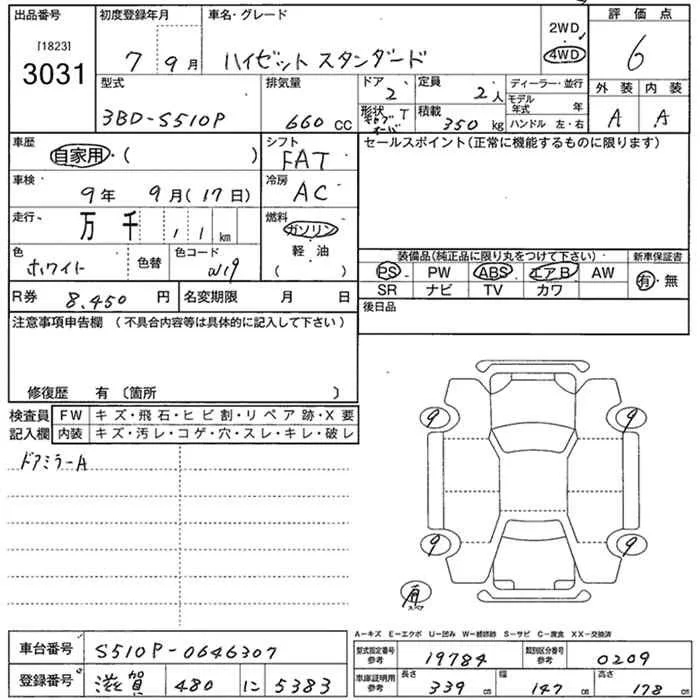 出品番号
[1823]
3031
初度登録年月
7 9月
車名・グレード
ハイゼット スタンダード
2WD
4WD
評価点
6
外装 内装
A A
型式
3BD-S510P
排気量
660 cc
ドア
2
形状
定員
2人
積載
350 kg
ディーラー・並行
モデル年式 年
ハンドル 左・右
車歴
自家用・( )
シフト
FAT
セールスポイント(正常に機能するものに限ります)
車検
9年 9月(17日)
冷房
AC
走行
万 千 11 km
燃料
ガソリン
軽油
( )
色
ホワイト
色替
色コード
W19
装備品(純正品に限り丸をつけて下さい)
新車保証書
PS PW ABS エアB AW
有・無
SR ナビ TV カワ
R券 8.450 円
名変期限 月 日
後日品
注意事項申告欄 (不具合内容等は具体的に記入して下さい)
修復歴 有 〔箇所 〕
検査員
記入欄
FW キズ・飛石・ヒビ割・リペア跡・X要
内装 キズ・汚レ・コゲ・穴・スレ・キレ・破レ
ドアミラーA
9 9
9 9
有
スペア
A-キズ E-エクボ U-凹み W-補修跡 S-サビ C-腐食 XX-交換済
車台番号 S510P-0646307
登録番号 滋賀 480 に 5383
型式指定番号
参考
19784
類別区分番号
参考
0209
車庫証明用
参考
長さ 339 cm
幅 147 cm
高さ 178 cm